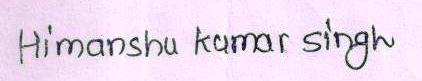 Himanshu kumar singh